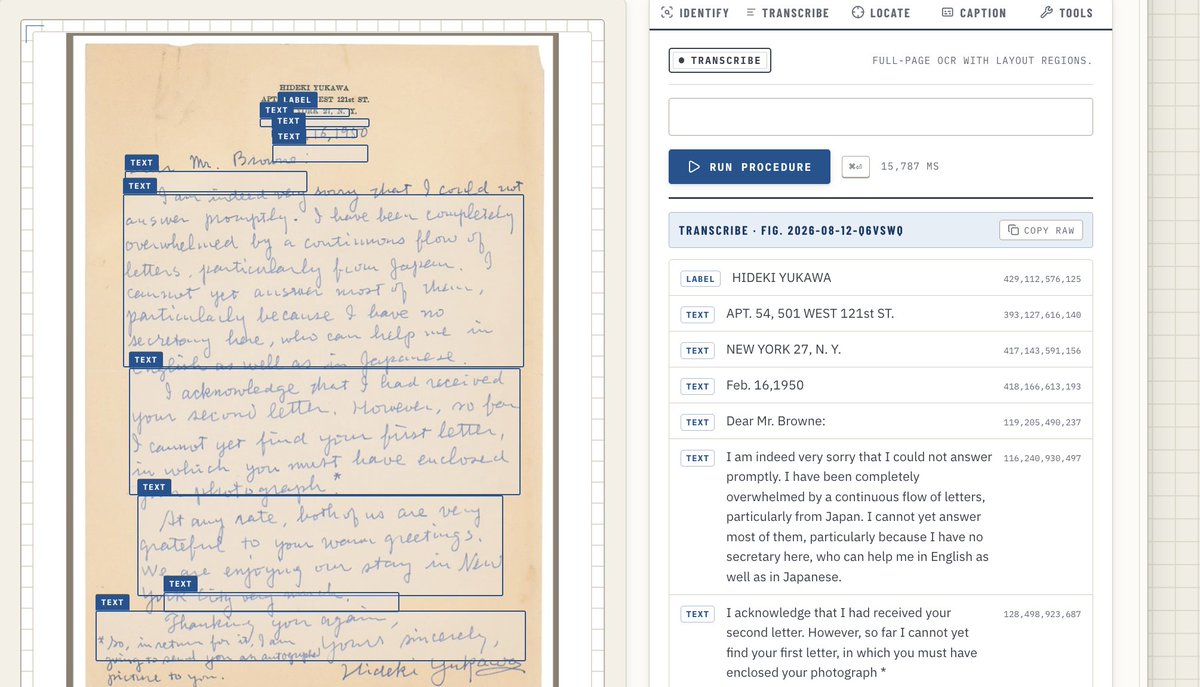 HIDEKI YUKAWA
LABEL
APT. WEST 121st ST.
TEXT
YORK 27, N. Y.
TEXT
TEXT 16, 1950
TEXT Mr. Browne:
TEXT
I am indeed very sorry that I could not
answer promptly. I have been completely
overwhelmed by a continuous flow of
letters, particularly from Japan. I
cannot yet answer most of them,
particularly because I have no
secretary here, who can help me in
TEXT
English as well as in Japanese.
I acknowledge that I had received
your second letter. However, so far
I cannot yet find your first letter,
in which you must have enclosed
TEXT
your photograph.*
At any rate, both of us are very
grateful to your warm greetings.
We are enjoying our stay in New
TEXT
York City very much.
TEXT
Thanking you again,
Yours sincerely,
Hideki Yukawa
* So, in return for it, I am
going to send you an autographed
picture to you.
IDENTIFY TRANSCRIBE LOCATE CAPTION TOOLS
TRANSCRIBE FULL-PAGE OCR WITH LAYOUT REGIONS.
RUN PROCEDURE ⌘⏎ 15,787 MS
TRANSCRIBE · FIG. 2026-08-12-Q6VSWQ COPY RAW
LABEL HIDEKI YUKAWA 429,112,576,125
TEXT APT. 54, 501 WEST 121st ST. 393,127,616,140
TEXT NEW YORK 27, N. Y. 417,143,591,156
TEXT Feb. 16,1950 418,166,613,193
TEXT Dear Mr. Browne: 119,205,490,237
TEXT I am indeed very sorry that I could not answer 116,240,930,497
promptly. I have been completely
overwhelmed by a continuous flow of letters,
particularly from Japan. I cannot yet answer
most of them, particularly because I have no
secretary here, who can help me in English as
well as in Japanese.
TEXT I acknowledge that I had received your 128,498,923,687
second letter. However, so far I cannot yet
find your first letter, in which you must have
enclosed your photograph *